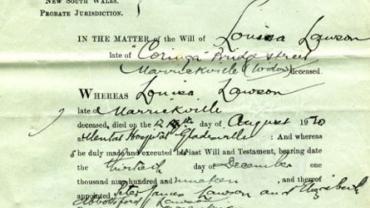 NEW SOUTH WALES.
PROBATE JURISDICTION.
IN THE MATTER of the Will of Louisa Lawson
late of "Coringa" Bridge Street
Marrickville (Widow) deceased.
WHEREAS Louisa Lawson
late of Marrickville
deceased, died on the day of August 1920
Mental Hospital Gladesville : And whereas
he duly made and executed his last Will and Testament, bearing date
the thirtieth day of December
one thousand nine hundred and nineteen , and thereof
appointed Peter James Lawson and Elizabeth
Lawson